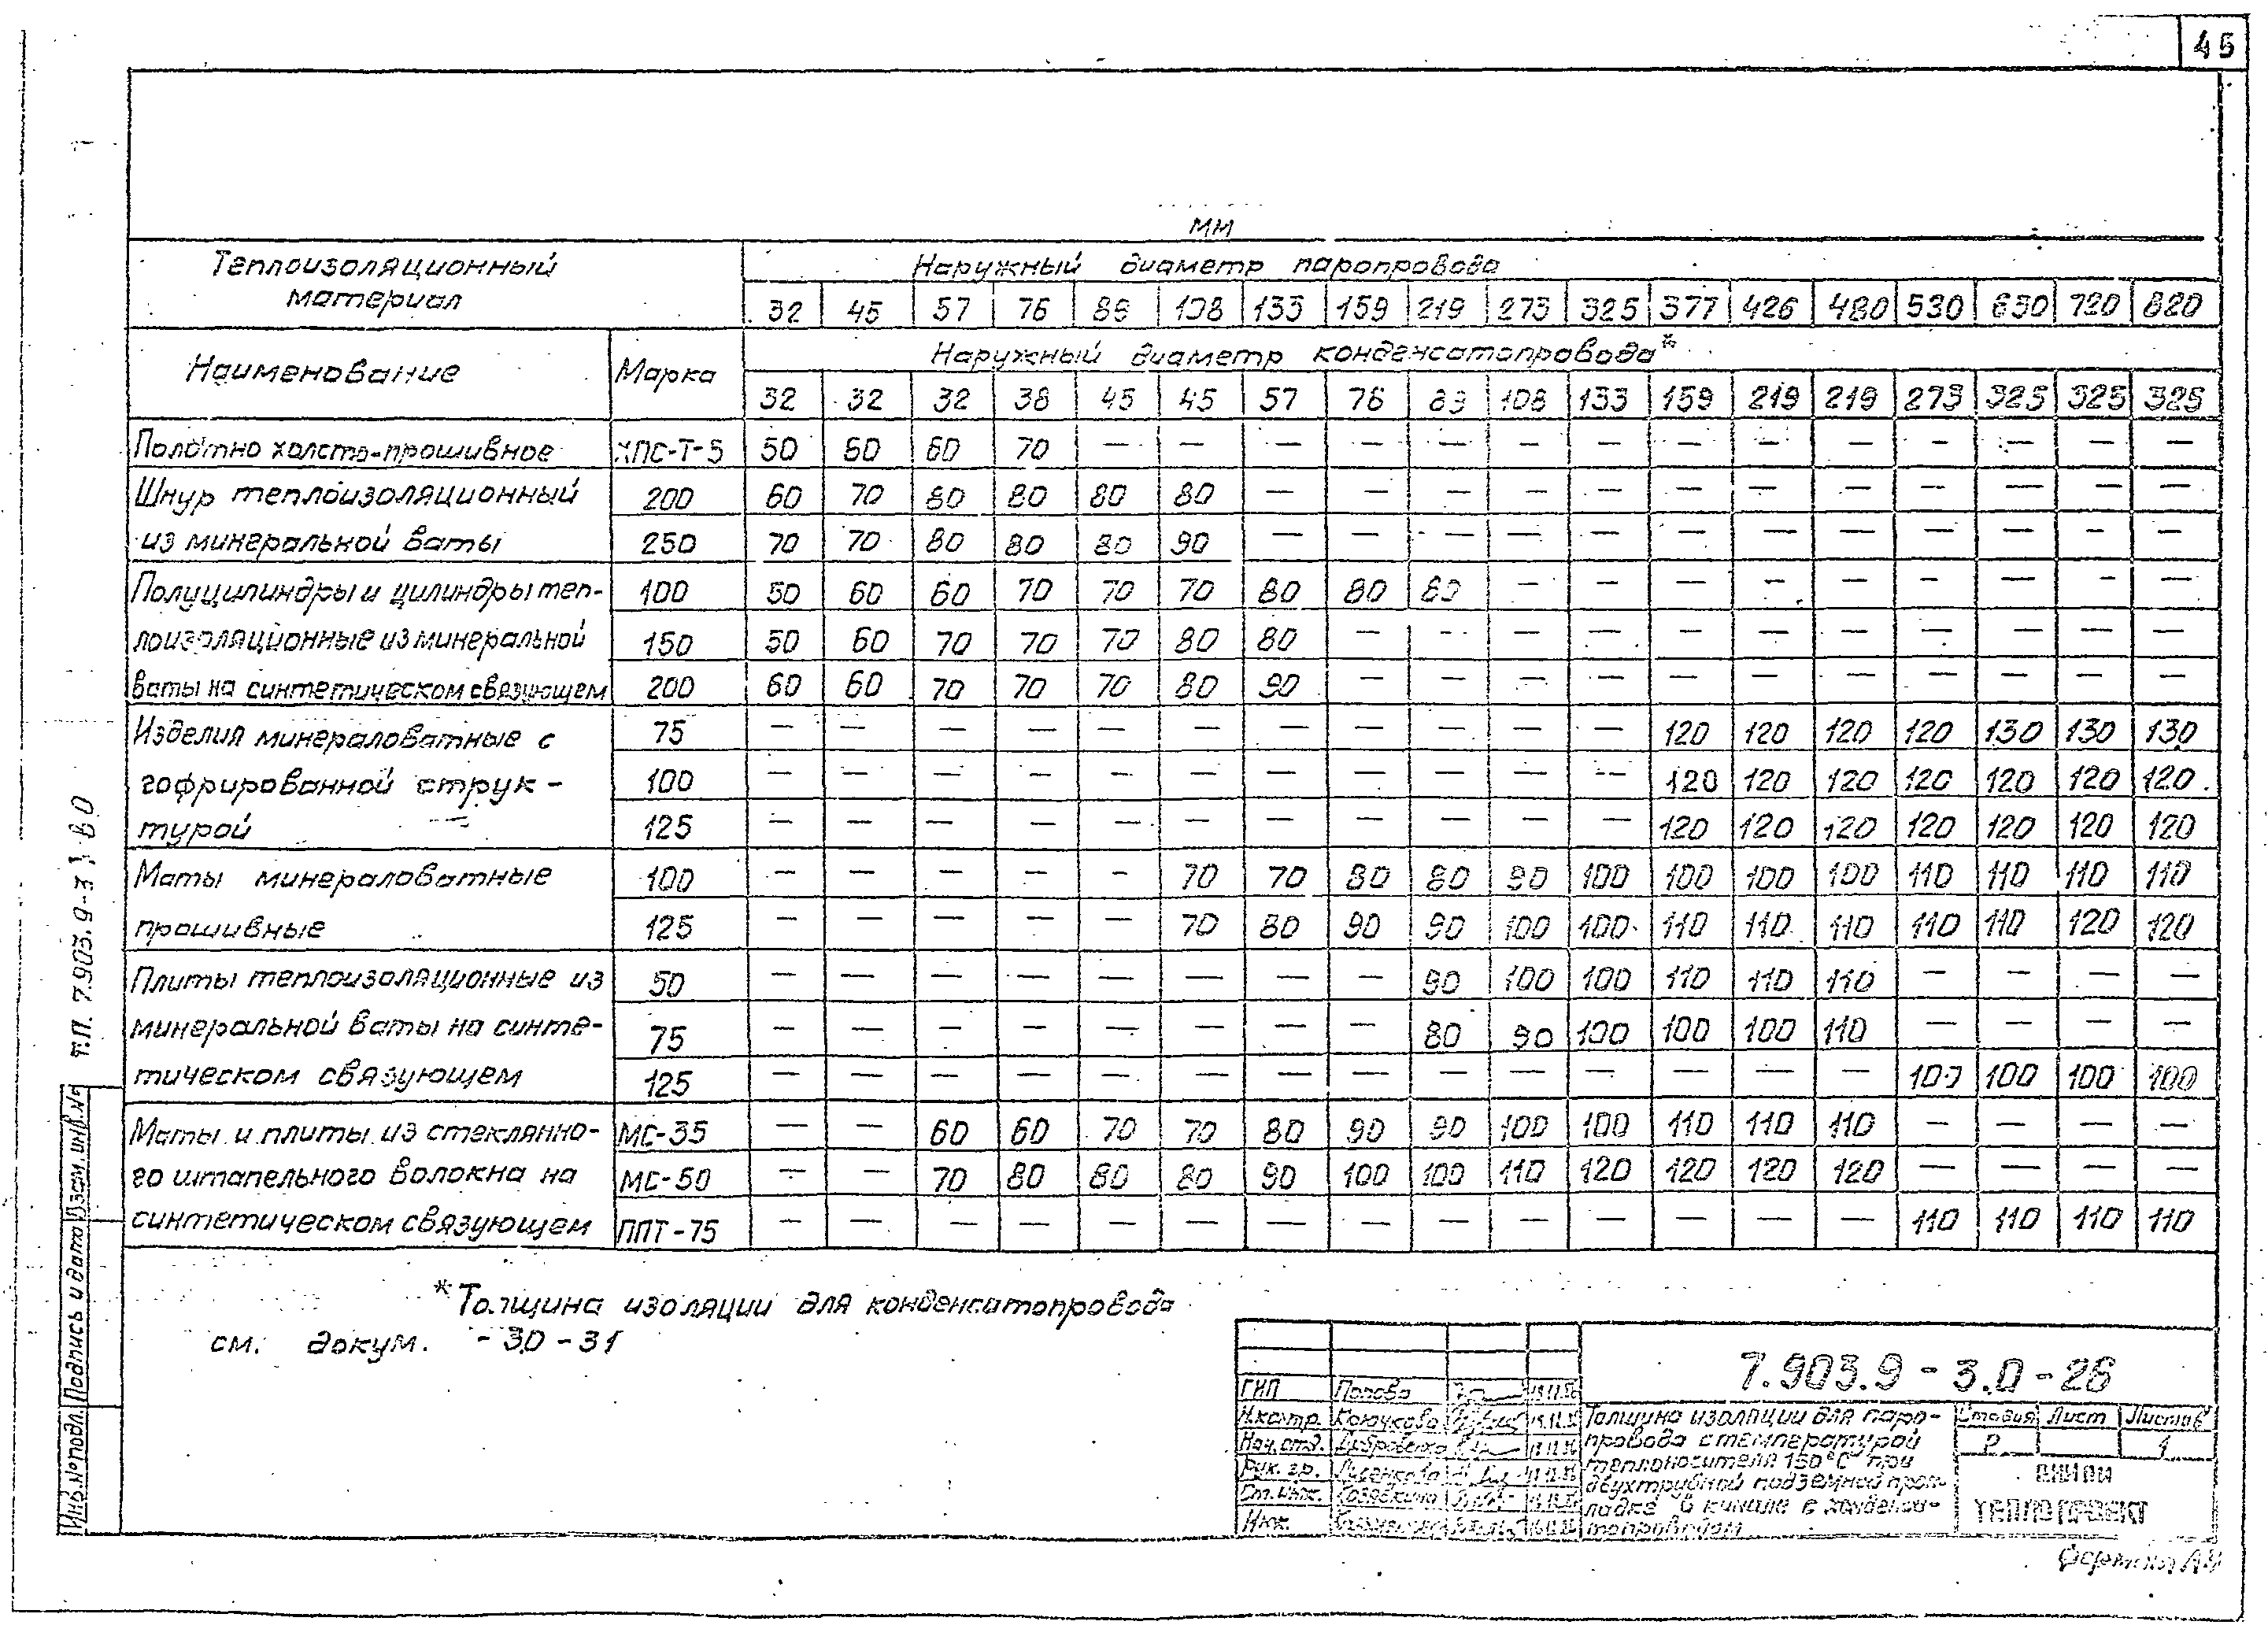 45
мм
Теплоизоляционный материал
Наружный диаметр паропровода
32 45 57 76 89 108 133 159 219 273 325 377 426 480 530 630 720 820
Наименование Марка
Наружный диаметр конденсатопровода*
32 32 32 38 45 45 57 76 89 108 133 159 219 219 273 325 325 325
Полотно холсто-прошивное ХПС-Т-5 50 60 60 70 — — — — — — — — — — — — — —
Шнур теплоизоляционный 200 60 70 80 80 80 80 — — — — — — — — — — — —
из минеральной ваты 250 70 70 80 80 80 90 — — — — — — — — — — — —
Полуцилиндры и цилиндры теп- 100 50 60 60 70 70 70 80 80 80 — — — — — — — — —
лоизоляционные из минеральной 150 50 60 70 70 70 80 80 — — — — — — — — — — —
ваты на синтетическом связующем 200 60 60 70 70 70 80 90 — — — — — — — — — — —
Изделия минераловатные с 75 — — — — — — — — — — — 120 120 120 120 130 130 130
гофрированной струк- 100 — — — — — — — — — — — 120 120 120 120 120 120 120
турой 125 — — — — — — — — — — — 120 120 120 120 120 120 120
Маты минераловатные 100 — — — — — 70 70 80 80 90 100 100 100 100 110 110 110 110
прошивные 125 — — — — — 70 80 90 90 100 100 110 110 110 110 110 120 120
Плиты теплоизоляционные из 50 — — — — — — — — 90 100 100 110 110 110 — — — —
минеральной ваты на синте- 75 — — — — — — — — 80 90 100 100 100 110 — — — —
тическом связующем 125 — — — — — — — — — — — — — — 100 100 100 100
Маты и плиты из стеклянно- МС-35 — — 60 60 70 70 80 90 90 100 100 110 110 110 — — — —
го штапельного волокна на МС-50 — — 70 80 80 80 90 100 100 110 120 120 120 120 — — — —
синтетическом связующем ППТ-75 — — — — — — — — — — — — — — 110 110 110 110
*Толщина изоляции для конденсатопровода
см. докум. -3.0-31
Т.П. 7.903.9-3 В 0
Инв.№ подл. Подпись и дата Взам.инв.№
7.903.9-3.0-26
ГИП Попова
Н.контр. Крючкова
Нач.отд.
Рук. гр. Лисенкова
Ст.инж.
Инж.
Толщина изоляции для паро-
провода с температурой
теплоносителя 150°С при
двухтрубной подземной прок-
ладке в канале с конденса-
топроводом
Стадия Лист Листов
Р 1
ВНИПИ
ТЕПЛОПРОЕКТ
Формат А3